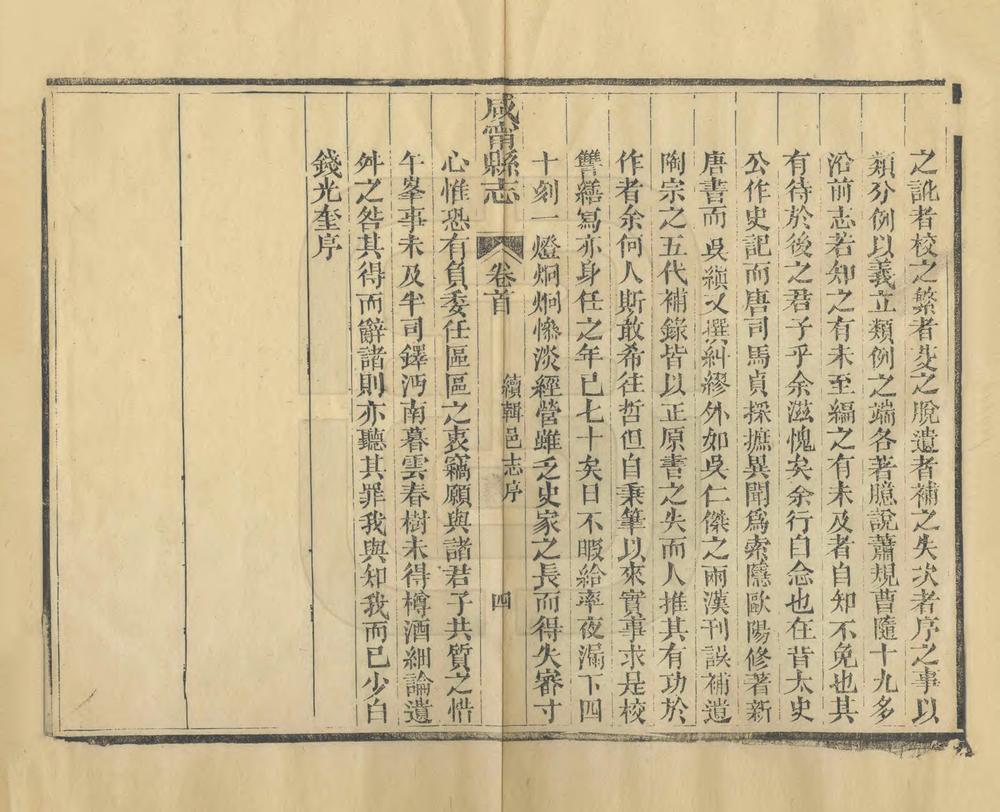 之訛者校之繁者芟之脫遺者補之失次者序之事以
類分例以義立類例之端各著臆說蕭規曹隨十九多
沿前志若知之有未至編之有未及者自知不免也其
有待於後之君子乎余滋愧矣余行自念也在昔太史
公作史記而唐司馬貞採摭異聞爲索隱歐陽修著新
唐書而吳縝又撰糾繆外如吳仁傑之兩漢刊誤補遺
陶宗之五代補錄皆以正原書之失而人推其有功於
作者余何人斯敢希往哲但自秉筆以來實事求是校
讐繕寫亦身任之年已七十矣日不暇給率夜漏下四
十刻一燈炯炯慘淡經營雖乏史家之長而得失審寸
咸甯縣志 卷首 續輯邑志序 四
心惟恐有負委任區區之衷竊願與諸君子共質之惜
午峯事未及半司鐸沔南暮雲春樹未得樽酒細論遺
舛之咎其得而辭諸則亦聽其罪我與知我而已少白
錢光奎序